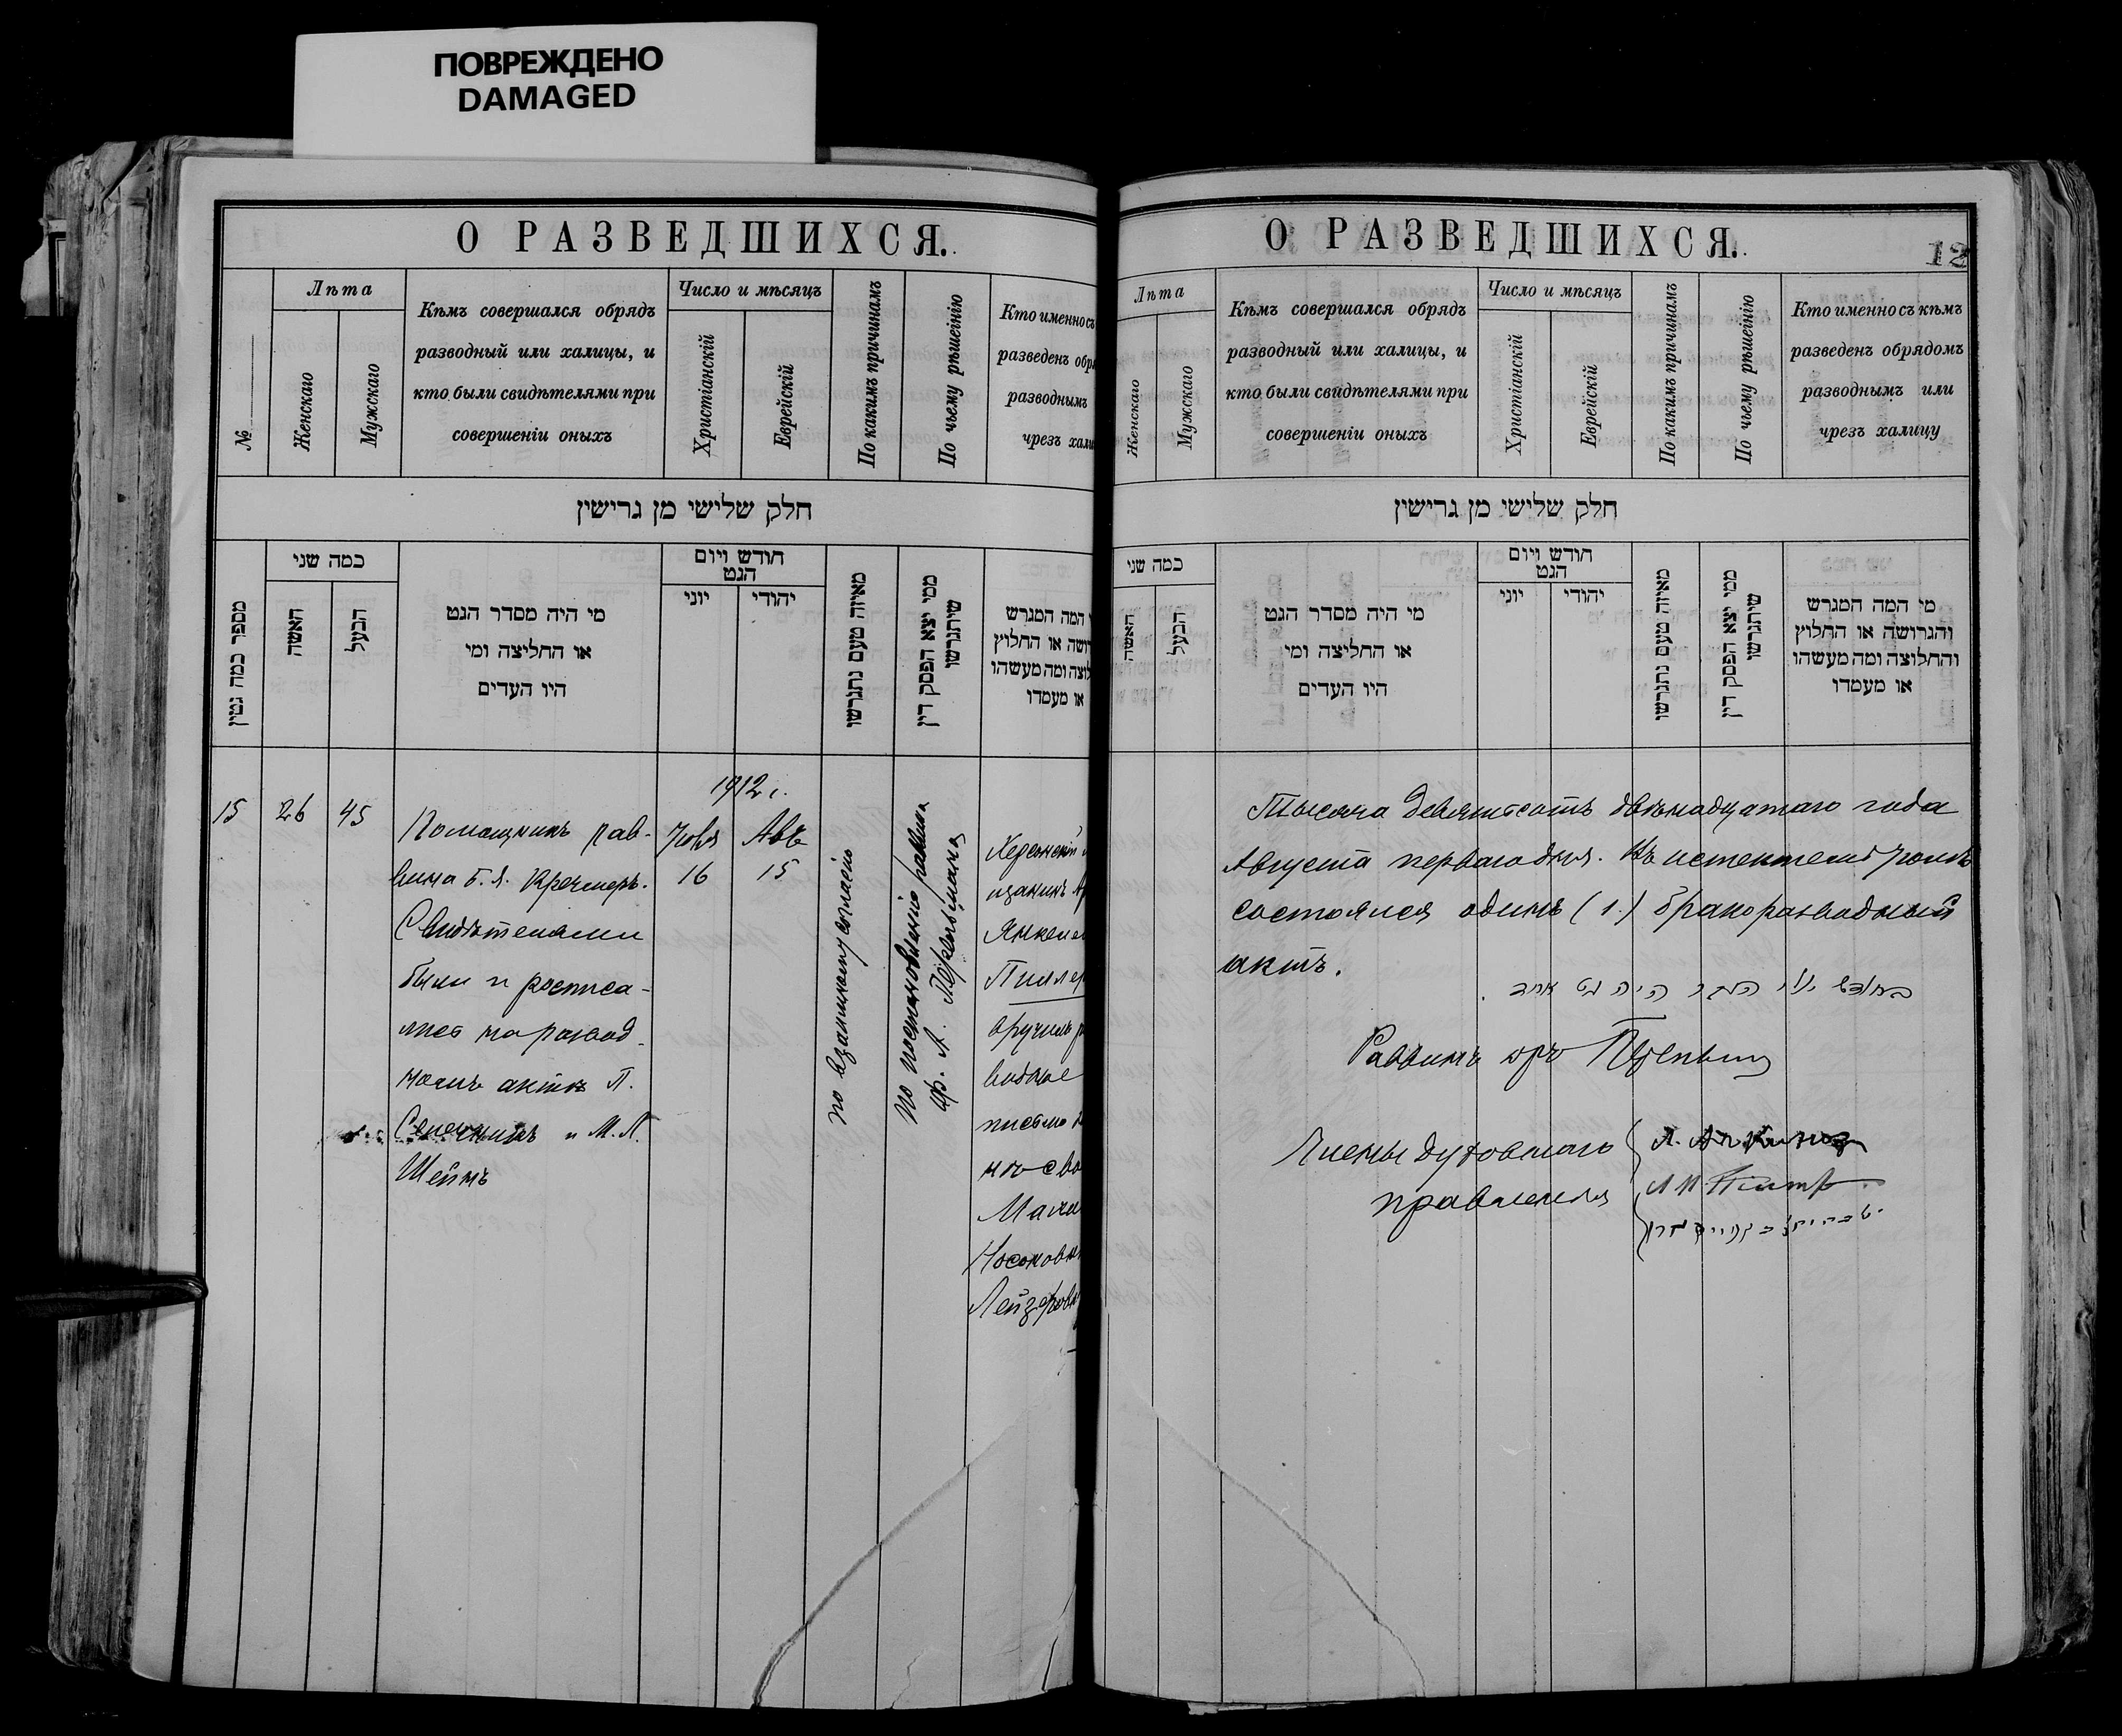 ПОВРЕЖДЕНО
DAMAGED
О РАЗВЕДШИХСЯ.
№
Лѣта
Женскаго
Мужскаго
Кѣмъ совершался обрядъ
разводный или халицы, и
кто были свидѣтелями при
совершеніи оныхъ
Число и мѣсяцъ
Христіанскій
Еврейскій
По какимъ причинамъ
По чьему рѣшеінію
Кто именно съ
разведенъ обр
разводнымъ
чрезъ хали
חלק שלישי מן גרישין
מספר כמה גטין
כמה שני
האשה
הבעל
מי היה מסדר הגט
או החליצה ומי
היו העדים
חודש ויום
הגט
יוני
יהודי
מאיזה טעם נתגרשו
ממי יצא הפסק דין
שיתגרשו
המה המגרש
רושה או החלוץ
לוצה ומה מעשהו
או מעמדו
15
26
45
Помощникъ рав-
вина Б. Я. Кремеръ.
Свидѣтелями
были и росписа-
лись на развод-
номъ актѣ П.
и М. Л.
Шейнъ
1912 г.
Авъ
16
15
по взаимному согласію
По постановленію равина
Ф. Л. Перельмана
Херсонскій
щанинъ
Янкел
Пиллер
вручилъ
водное
письмо
Носоновн
Лейзеров
О РАЗВЕДШИХСЯ.
12
Лѣта
Женскаго
Мужскаго
Кѣмъ совершался обрядъ
разводный или халицы, и
кто были свидѣтелями при
совершеніи оныхъ
Число и мѣсяцъ
Христіанскій
Еврейскій
По какимъ причинамъ
По чьему рѣшеінію
Кто именно съ кѣмъ
разведенъ обрядомъ
разводнымъ или
чрезъ халицу
חלק שלישי מן גרישין
כמה שני
האשה
הבעל
מי היה מסדר הגט
או החליצה ומי
היו העדים
חודש ויום
הגט
יוני
יהודי
מאיזה טעם נתגרשו
ממי יצא הפסק דין
שיתגרשו
מי המה המגרש
והגרושה או החלוץ
והחלוצה ומה מעשהו
או מעמדו
Тысяча девятьсотъ двѣнадцатаго года
Августа перваго дня. Въ истекшемъ Іюлѣ
состоялся одинъ (1.) бракоразводный
актъ.
Раввинъ
Члены духовнаго
правленія